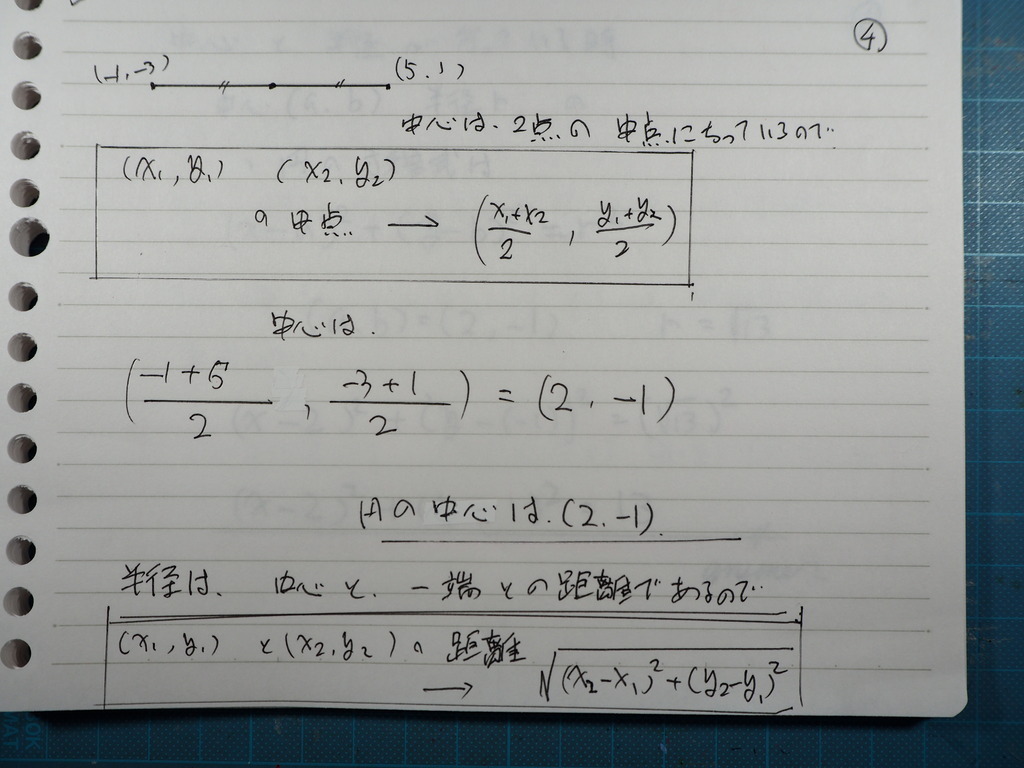 ④
(-1,-3) (5.1)
中心は、2点の中点になっているので…
(x₁,y₁) (x₂,y₂)
の中点 → (x₁+x₂/2, y₁+y₂/2)
中心は.
(-1+5/2, -3+1/2) = (2,-1)
円の中心は.(2.-1).
半径は、中心と、一端との距離であるので…
(x₁,y₁)と(x₂,y₂)の距離
→ √(x₂-x₁)²+(y₂-y₁)²